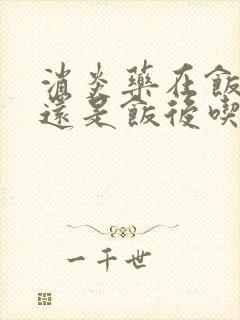 消炎藥在飯
還是飯後喫
一千世